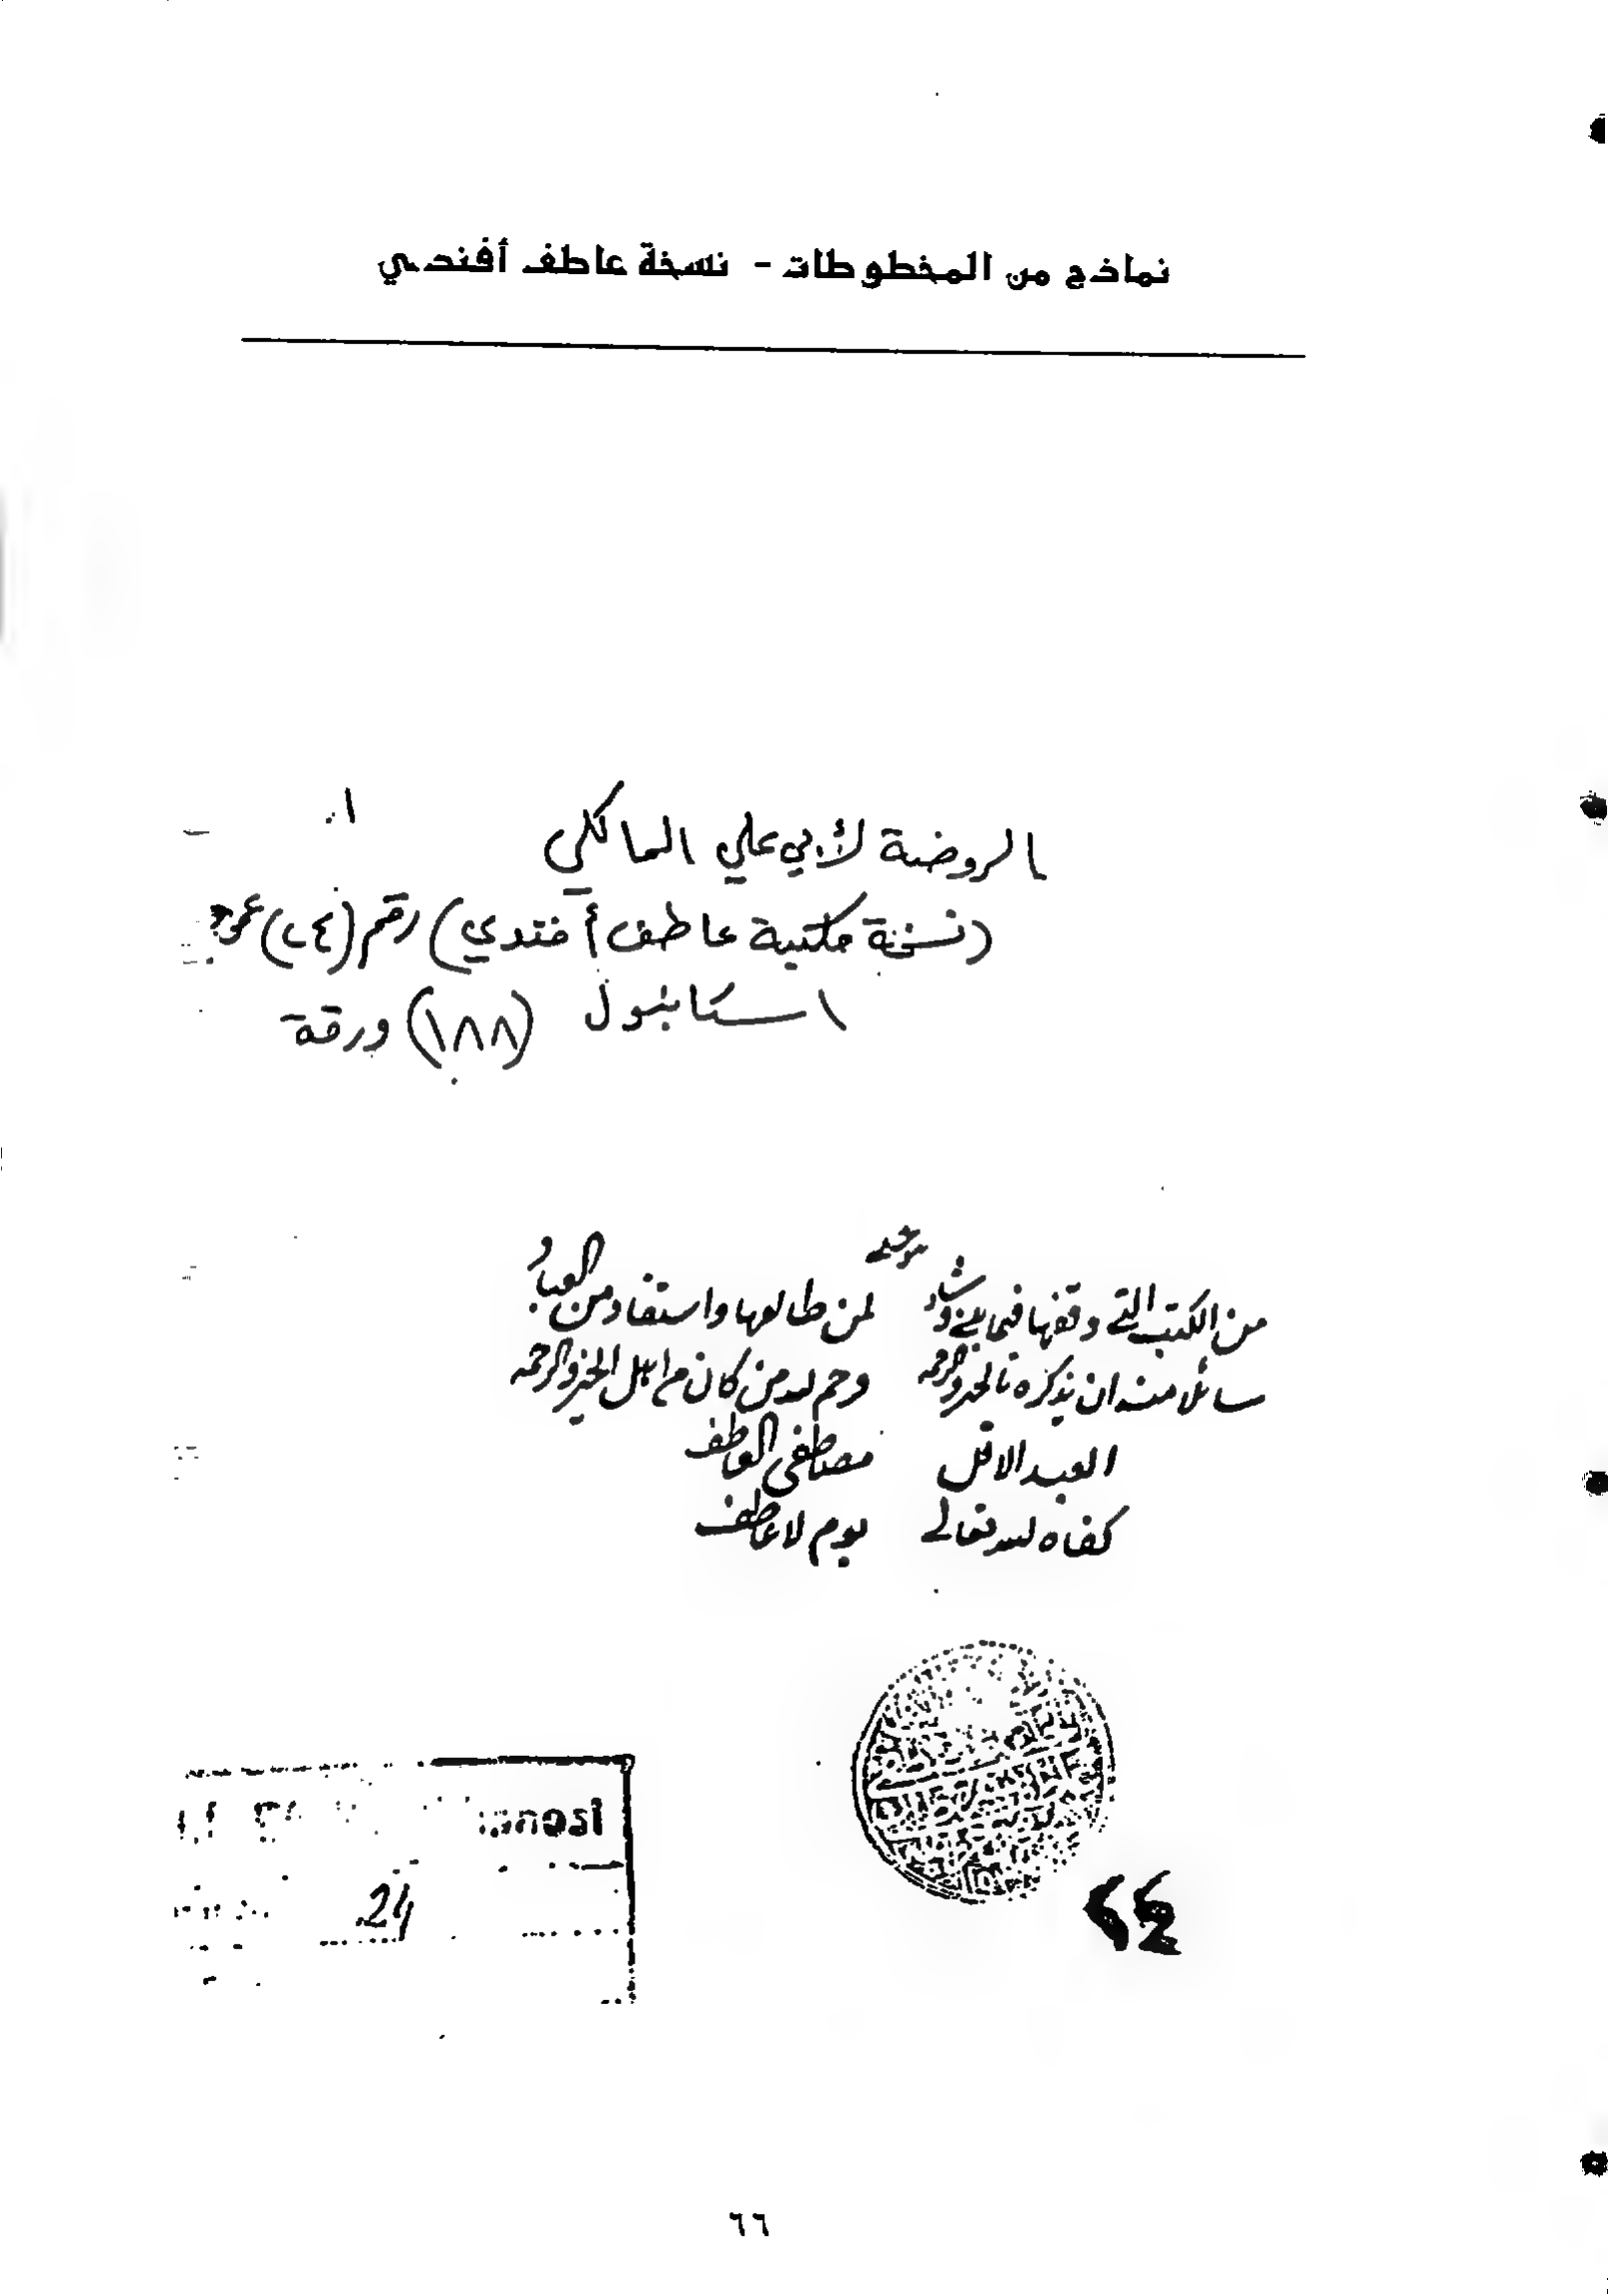 نماذج من المخطوطات - نسخة عاطف أفندي
الروضة لأبي علي المالكي
(نسخة مكتبة عاطف أفندي) رقم (٢٤)
استانبول (١٨٨) ورقة
من الكتب التي وقفها لمن طالعها واستفاد من العباد
سائلا منه ان يذكره بالخير والرحمه ورحم الله من كان من اهل الخير والرحمه
العبد الاقل مصطفى العاطف
كفاه الله تعالى يوم لا عاطف
٢٤
24
٦٦